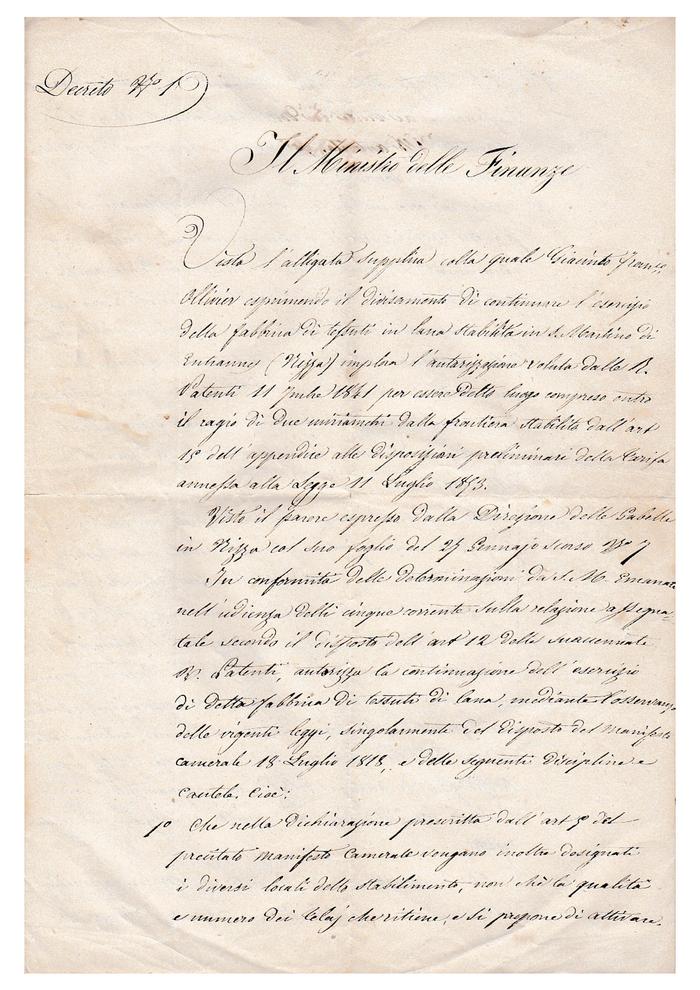 Decreto N.º 1
Il Ministro delle Finanze
Vista l'allegata supplica colla quale Giacinto Franco
Ollivier esprimendo il divisamento di continuare l'esercizio
della fabbrica di tessuti in lana stabilita in S. Martino di
Entraunes (Nizza) implora l'autorizzazione voluta dalle R.
Patenti 11 7mbre 1841 per essere detto luogo compreso entro
il ragio di due miriametri dalla frontiera stabilita dall'art
15 dell'appendice alle disposizioni preliminari della Tariffa
annessa alla Legge 11 Luglio 1853.
Visto il parere espresso dalla Direzione delle Gabelle
in Nizza col suo foglio del 25 Gennajo scorso N.º 7
In conformità delle determinazioni da S. M. Emanate
nell'udienza delli cinque corrente sulla relazione assegna-
tale secondo il disposto dell'art 12 delle suaccennate
R. Patenti, autorizza la continuazione dell'esercizio
di detta fabbrica di tessuti di lana, mediante l'osservanza
delle vigenti leggi, singolarmente del disposto del manifesto
camerale 18 Luglio 1818, e delle seguenti discipline e
cautele. Cioè:
1º Che nella dichiarazione prescritta dall'art 5º del
precitato manifesto Camerale vengano inoltre designati
i diversi locali dello stabilimento, non chè la qualità
e numero dei telaj che ritiene, e si propone di attivare.